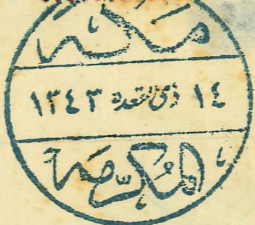 مكة
١٤ ذى القعدة ١٣٤٣
المكرمة